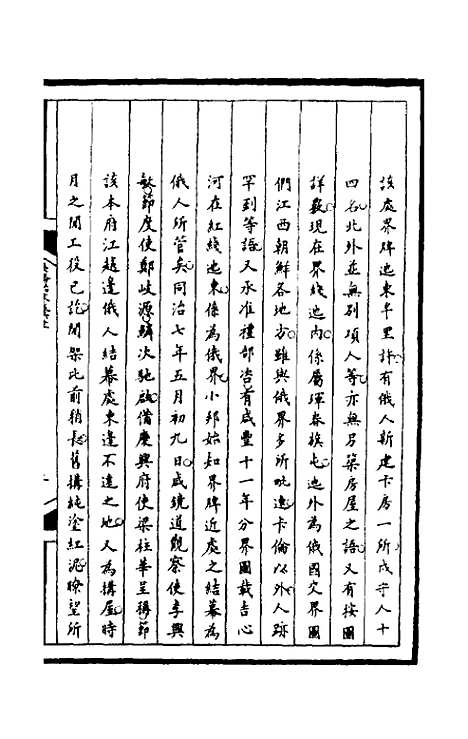 該處界牌迤東半里許有俄人新建卡房一所戍守人十
四名此外並無別項人等亦無另築房屋之語又有按圖
詳覈現在界綫迤內係屬琿春族屯迤外為俄國交界圖
們江西朝鮮各地方雖與俄界多所毗連卡倫以外人跡
罕到等語又承准禮部咨前有咸豐十一年分界圖載吉心
河在紅綫迤東係為俄界小邦始知界牌近處之結幕為
俄人所管矣同治七年五月初九日咸鏡道觀察使李興
敏節度使鄭岐源鱗次馳啟備慶興府使梁柱華呈稱節
該本府江越邊俄人結幕處東邊不遠之地又為搆屋時
月之間工役已訖間架比前稍長舊搆純塗紅泥瞭望所